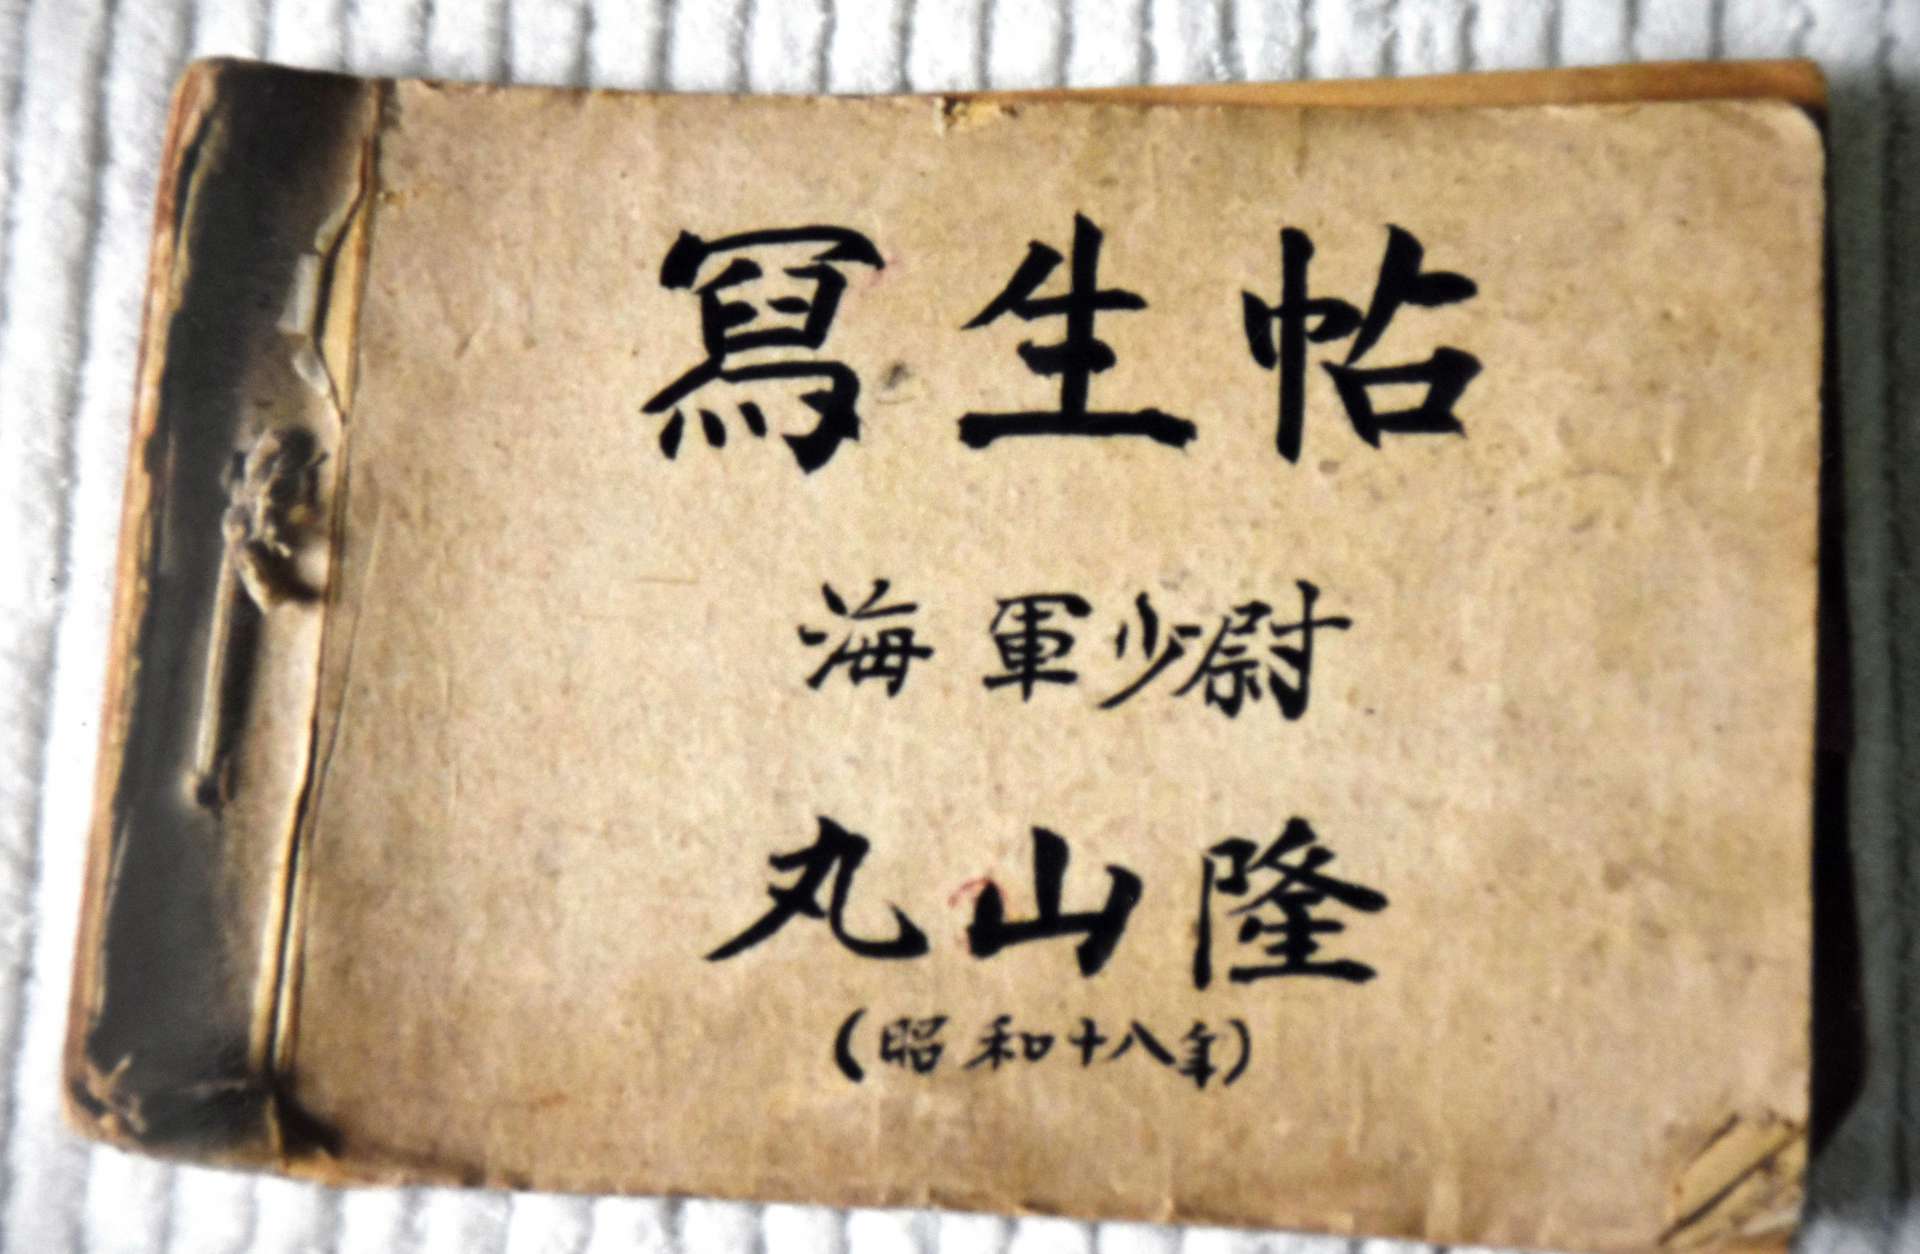 冩生帖
海軍少尉
丸山隆
(昭和十八年)